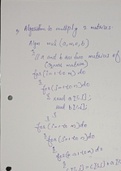 Algorithm to multiply 2 matrices.
Algo mul (a, m, n, b)
{ // a and b are two matrices of
(square matrix)
for (i=1 to n) do
{
for (j=1 to n) do
{
read a[i,j];
read b[i,j];
}
}
for (i=1 to n) do
{
for (j=1 to n) do
{
for (k=1 to n) do
{